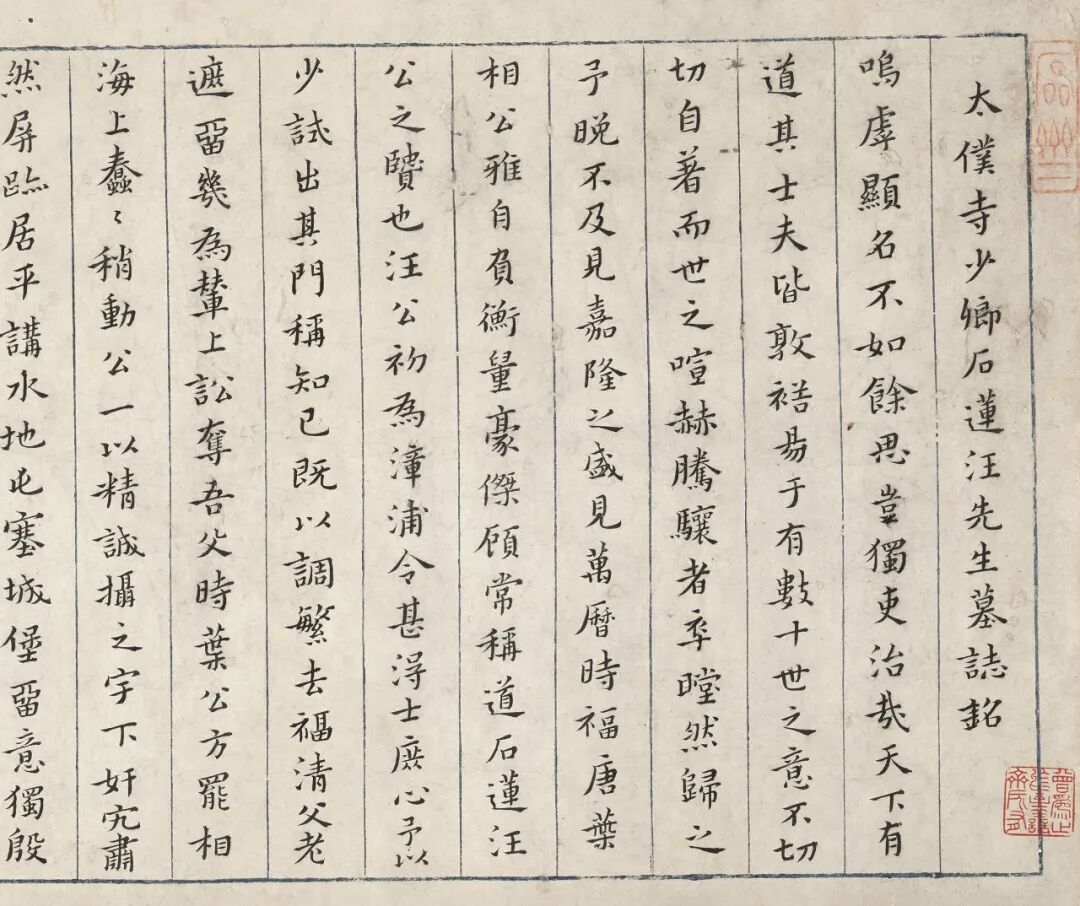 太僕寺少卿石蓮汪先生墓誌銘
嗚虖顯名不如餘思豈獨吏治哉天下有
道其士夫皆敦易于有數十世之意不切
切自著而世之喧赫騰驤者率瞠然歸之
予晚不及見嘉隆之盛見萬曆時福唐葉
相公雅自負衡量豪傑顧常稱道石蓮汪
公之賢也汪公初為漳浦令甚得士庶心予以
少試出其門稱知己既以調繁去福清父老
遮畱幾為輦上訟奪吾父時葉公方罷相
海上蠢〻稍動公一以精誠攝之宇下奸宄肅
然屏跡居平講水地屯塞城堡畱意獨殷